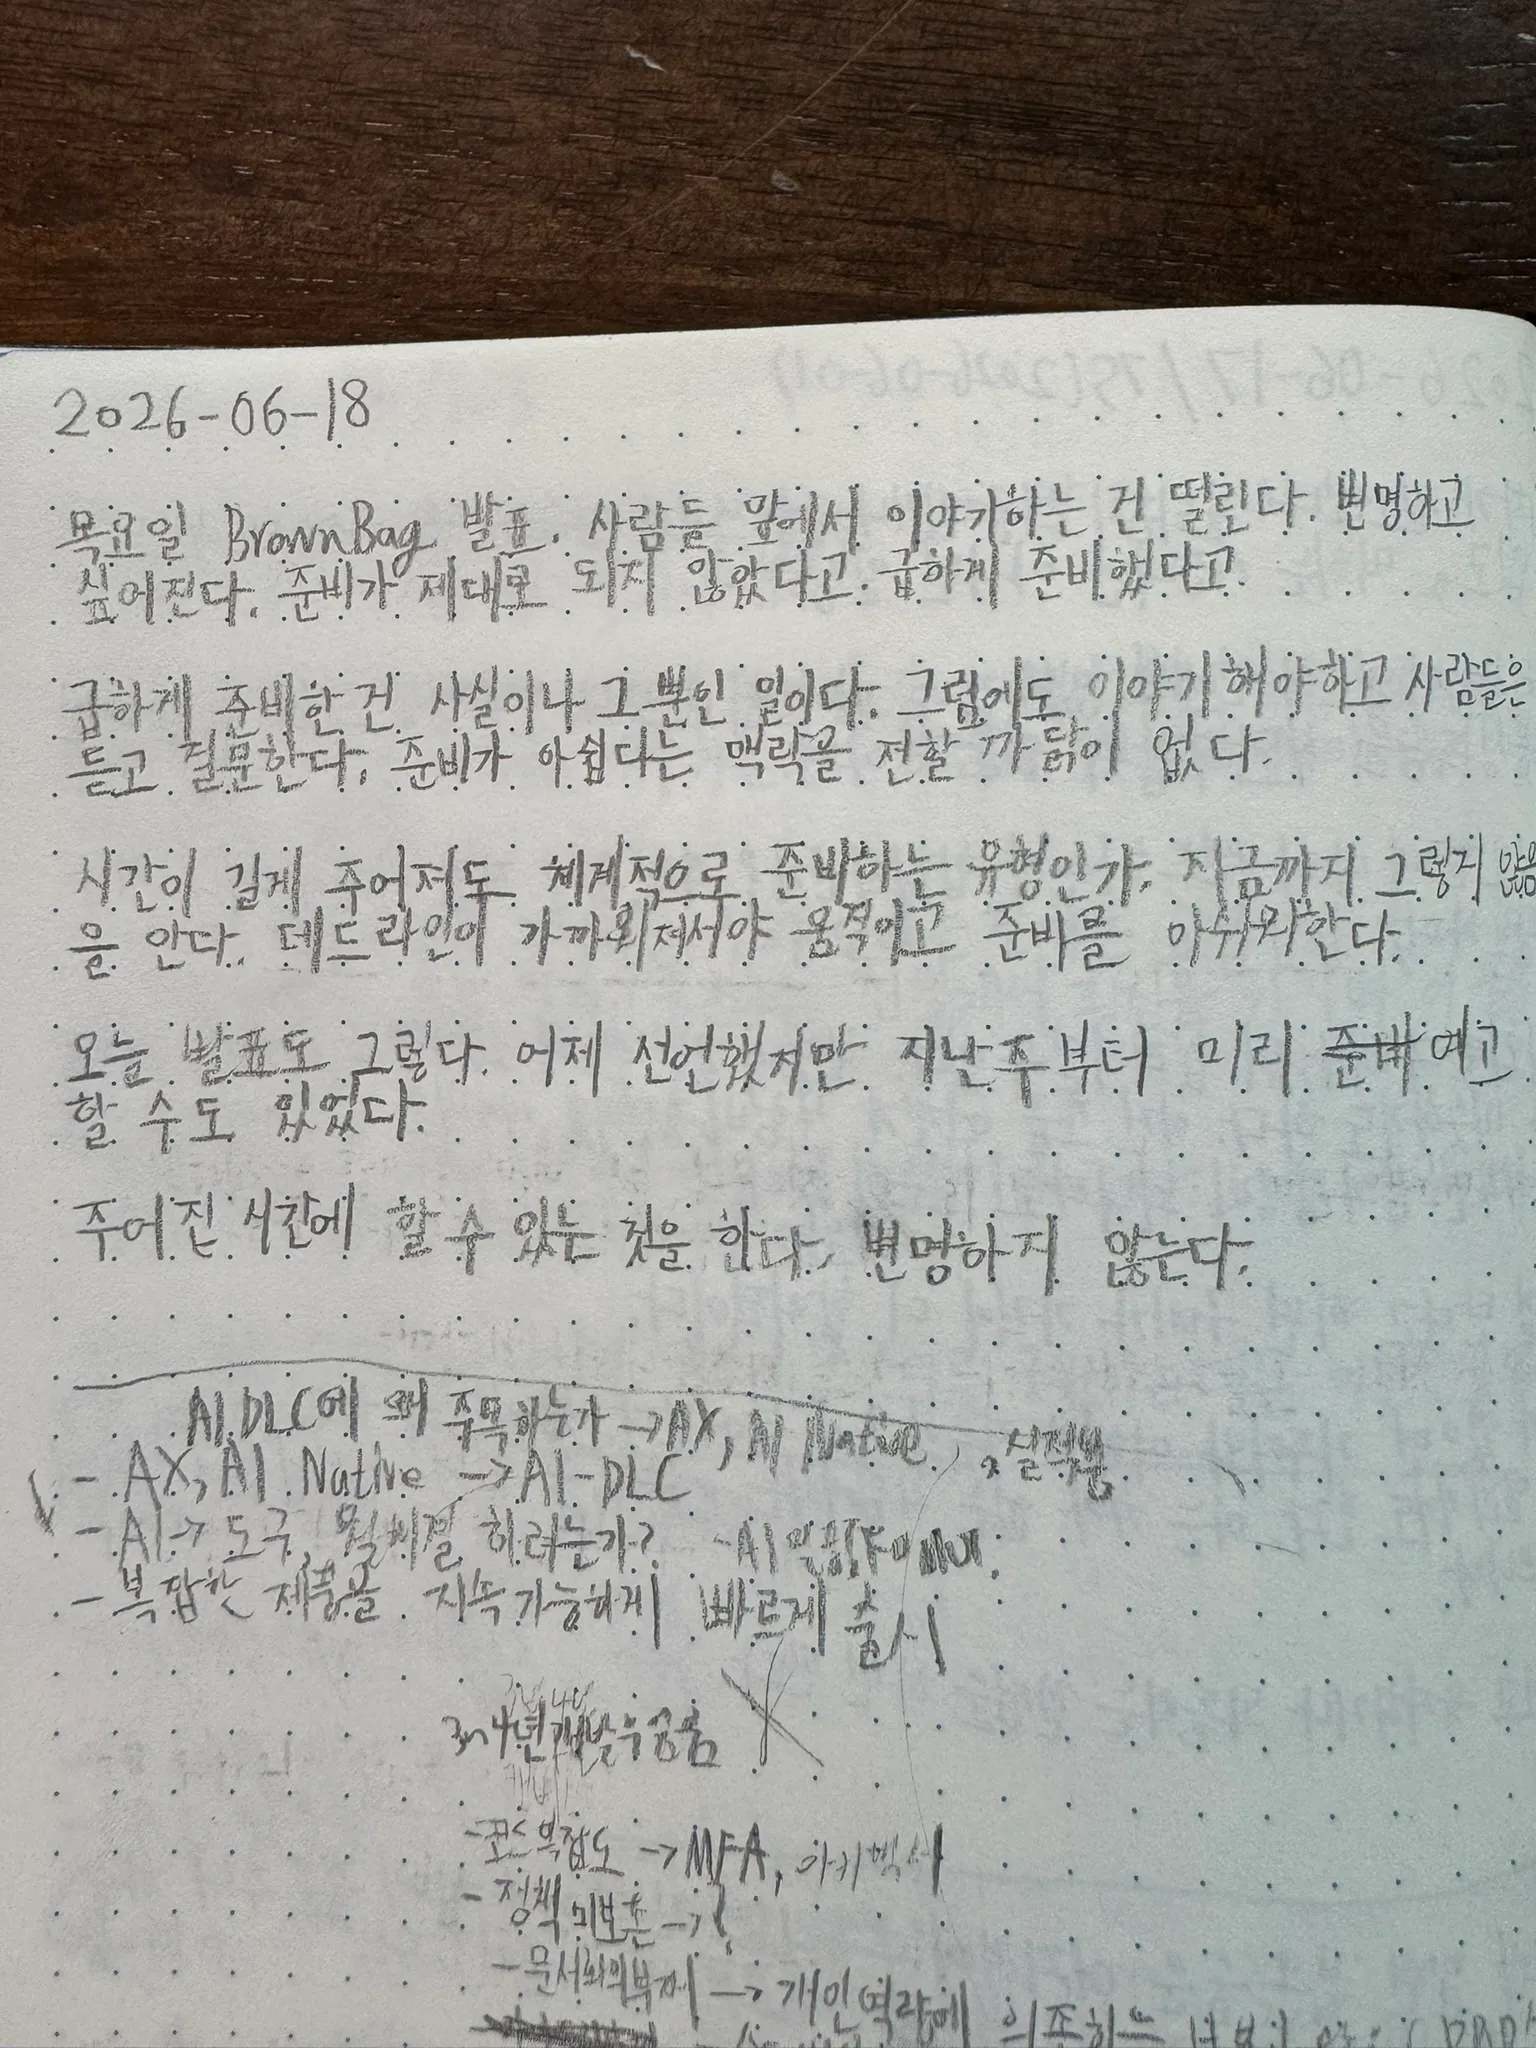 2026-06-18
목요일 BrownBag 발표. 사람들 앞에서 이야기하는 건 떨린다. 변명하고
싶어진다. 준비가 제대로 되지 않았다고. 급하게 준비했다고.
급하게 준비한 건 사실이나 그 뿐인 일이다. 그럼에도 이야기해야하고 사람들은
듣고 질문한다. 준비가 아쉽다는 맥락을 전할 까닭이 없다.
시간이 길게 주어져도 체계적으로 준비하는 유형인가. 지금까지 그렇지 않음
을 안다. 데드라인이 가까워져서야 움직이고 준비를 아쉬워한다.
오늘 발표도 그렇다. 어제 선언했지만 지난주부터 미리 준비 예고
할 수도 있었다.
주어진 시간에 할 수 있는 것을 한다. 변명하지 않는다.
AI DLC에 왜 주목하는가 → AX, AI Native
- AX, AI Native → AI-DLC
- AI → 도구, 하려는가?
- 복잡한 제품을 지속가능하게 빠르게 출시
3~4년
- 코드복잡도 → MFA, 아키텍처
- 정책 미보존 →
- 문서화의 부재 → 개인역량에 의존하는